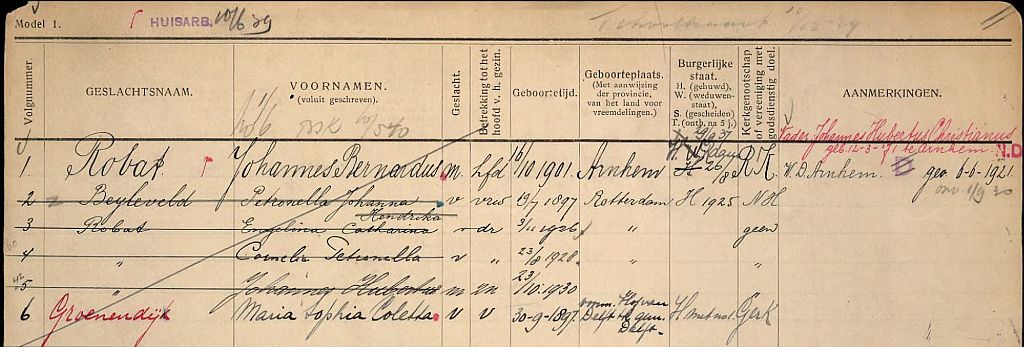 Model 1.
HUISARB.
10/6 39
Volgnummer.
GESLACHTSNAAM.
VOORNAMEN.
(voluit geschreven).
Geslacht.
Betrekking tot het
hoofd v. h. gezin.
Geboortetijd.
Geboorteplaats.
(Met aanwijzing
der provincie,
van het land voor
vreemdelingen.)
Burgerlijke
staat.
H. (gehuwd),
W. (weduwen-
staat),
S. (gescheiden)
T. (ontb. na 5 j.)
Kerkgenootschap
of vereeniging met
godsdienstig doel.
AANMERKINGEN.
Vader Johannes Hubertus Christianus
geb. 12-3-71 te Arnhem. N.D
1. Robat Johannes Bernardus m hfd 16/10 1901 Arnhem H 26/8 RK W.D. Arnhem. gev 6-6-1921.
omv. 1/9 30
2 Beyleveld Petronella Johanna v vrw 1897 Rotterdam H 1925 NH
Hendrika
3 Robat Engelina Catharina v dr 3/11 1926 " geen
4 " Cornelia Petronella v " 23/8 1928 " "
5 " Johannes Hubertus m zn 23/10 1930
6 Groenendijk Maria Sophia Coletta v v 30-9-1897. Hof van Delft th. gem. Delft. H met no 1. GerK "